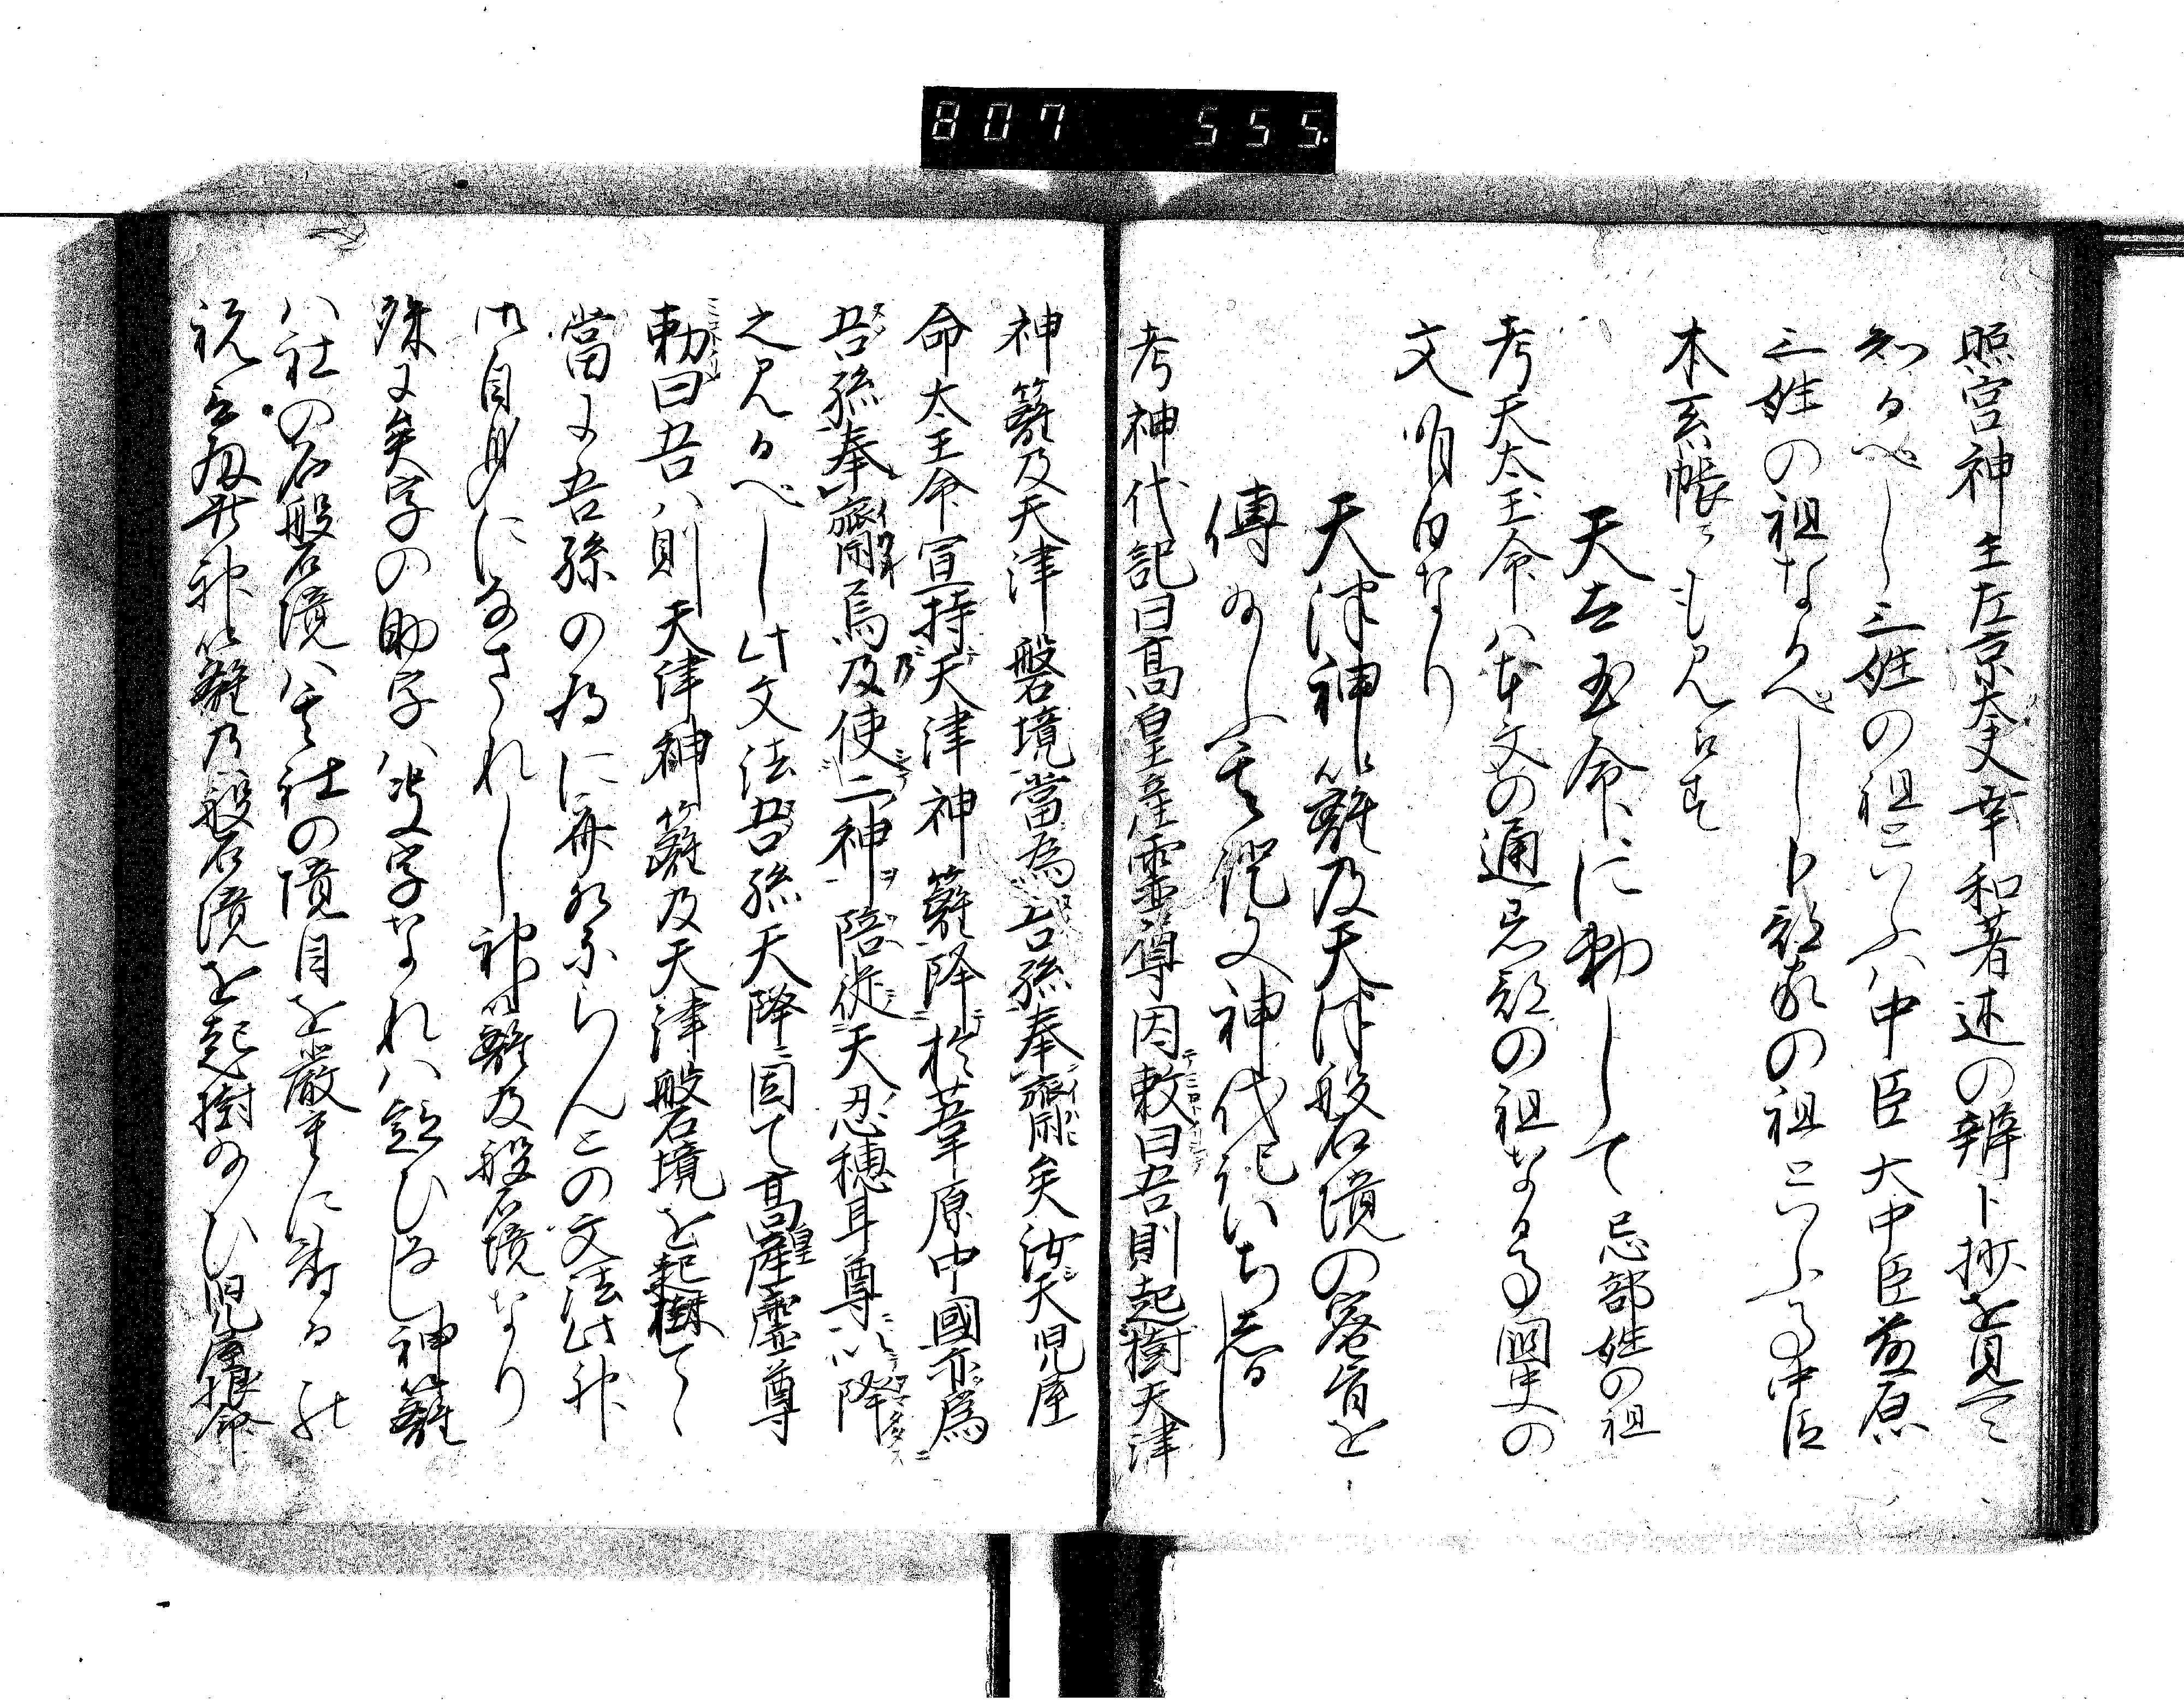 807 555
照宮神主左京太夫幸和著述の辨卜抄を見て
知るべし三姓の祖といふハ中臣大中臣藤原
三姓の祖なるべし卜部家の祖といふ事中臣
本系帳にも見えす
天太玉命に勅して忌部姓の祖
考天太玉命ハ本文の通忌部の祖なる事旧史の
文明白なり
天津神籬及天津磐境の密旨を
傳給ふ其證文神代記いちしるし
考神代記曰高皇産霊尊因敕曰吾則起樹天津
神籬及天津磐境當為吾孫奉齋矣汝天児屋
命太玉命宜持天津神籬降於葦原中國亦為
吾孫奉齋焉乃使二神陪從天忍穂耳尊以降
之見るべし此文法吾孫天降に因て高皇産霊尊
勅曰吾ハ則天津神籬及天津磐境を起樹て
當に吾孫の為に齋奉らんとの文法此神
御自身になされし神籬及磐境なり
殊に矣字の助字ハ決字なれハ疑ひなし神籬
ハ社の名磐境ハ其社の境目を嚴重に
神籬乃磐境を起樹給ひ児屋根命